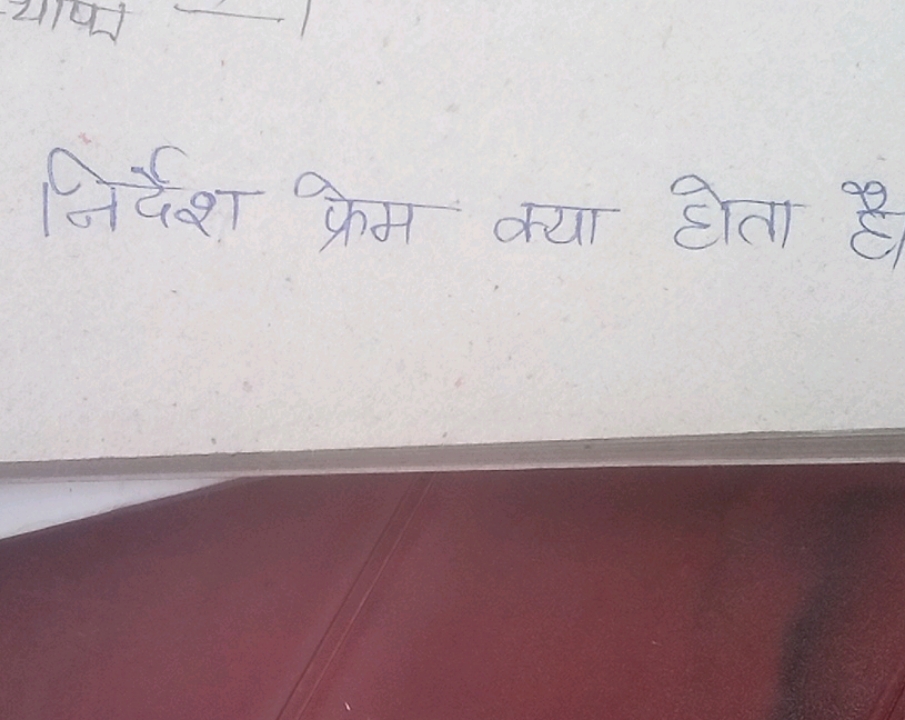 निर्देश फ्रेम क्या होता है